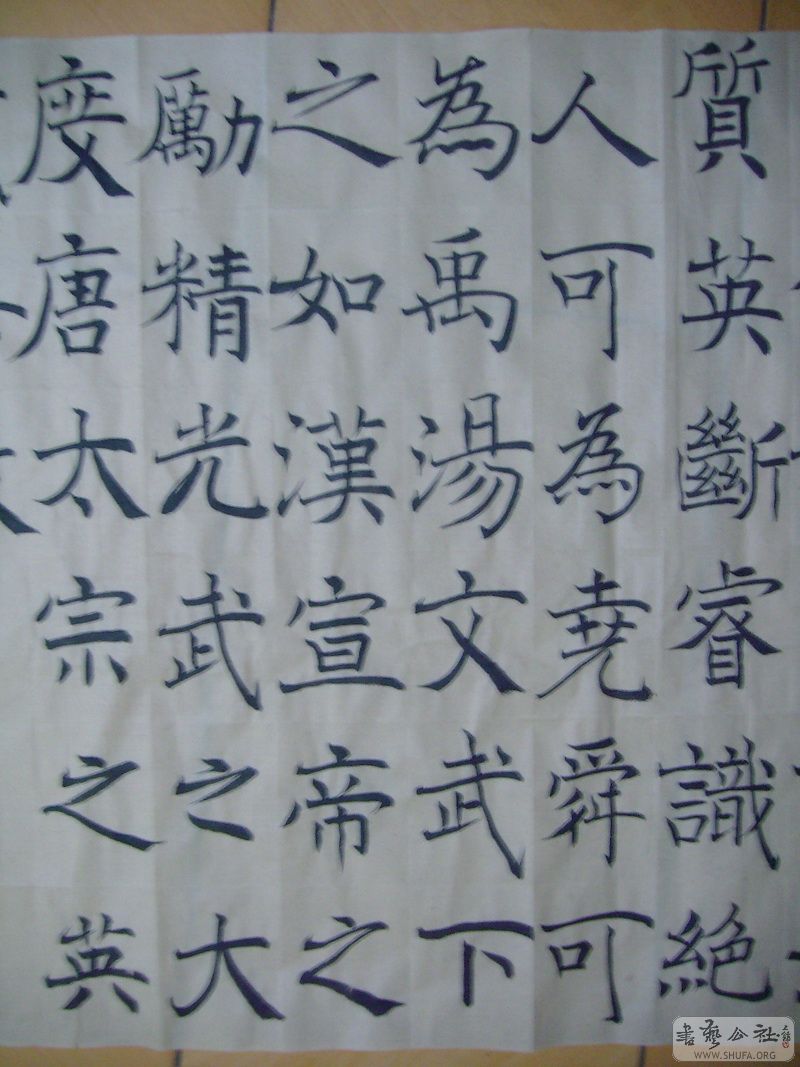 質英斷睿識絕
人可為堯舜可
為禹湯文武下
之如漢宣帝之
勵精光武之大
度唐太宗之英
書藝公社
WWW.SHUFA.ORG